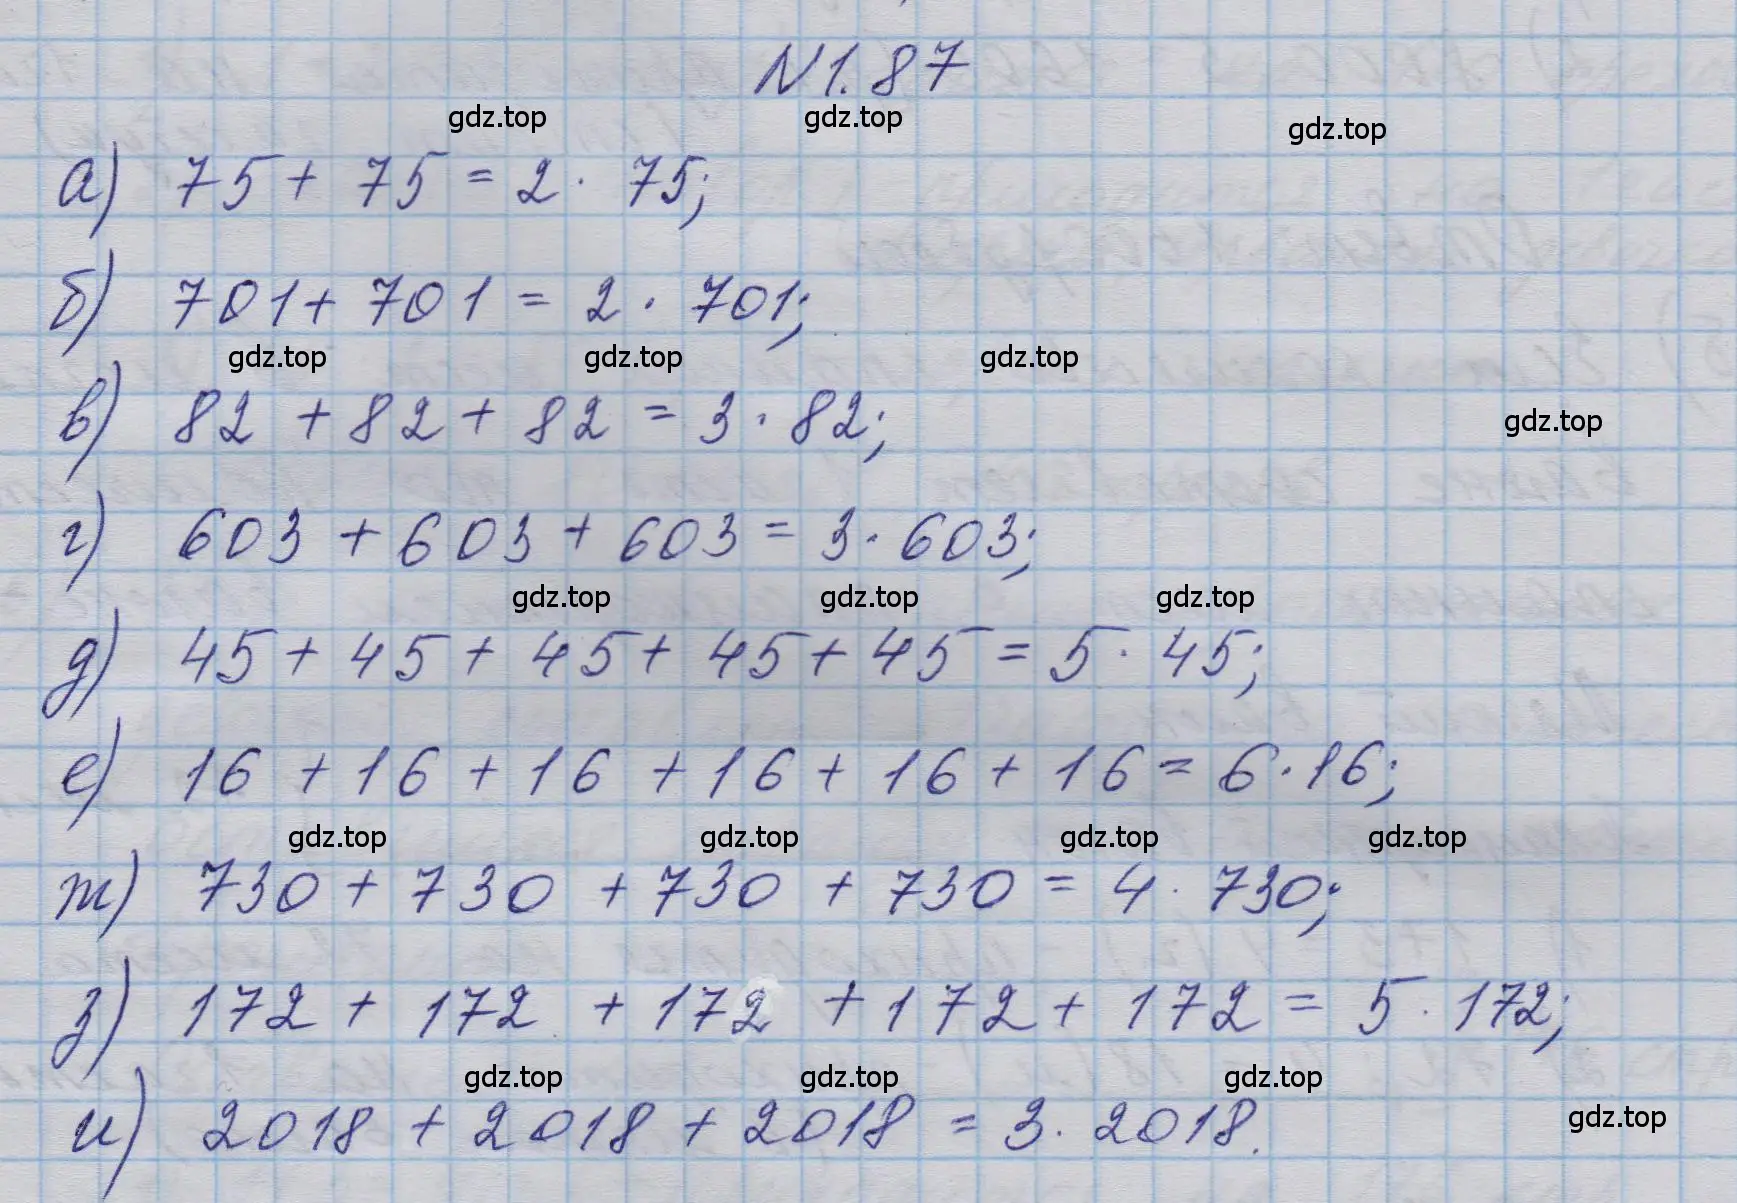 N1.87
gdz.top gdz.top gdz.top
а) 75 + 75 = 2 · 75;
б) 701 + 701 = 2 · 701;
gdz.top gdz.top gdz.top
в) 82 + 82 + 82 = 3 · 82;
gdz.top
г) 603 + 603 + 603 = 3 · 603;
gdz.top gdz.top gdz.top
д) 45 + 45 + 45 + 45 + 45 = 5 · 45;
е) 16 + 16 + 16 + 16 + 16 + 16 = 6 · 16;
gdz.top gdz.top gdz.top gdz.top
ж) 730 + 730 + 730 + 730 = 4 · 730;
з) 172 + 172 + 172 + 172 + 172 = 5 · 172;
gdz.top gdz.top gdz.top
и) 2018 + 2018 + 2018 = 3 · 2018.
gdz.top